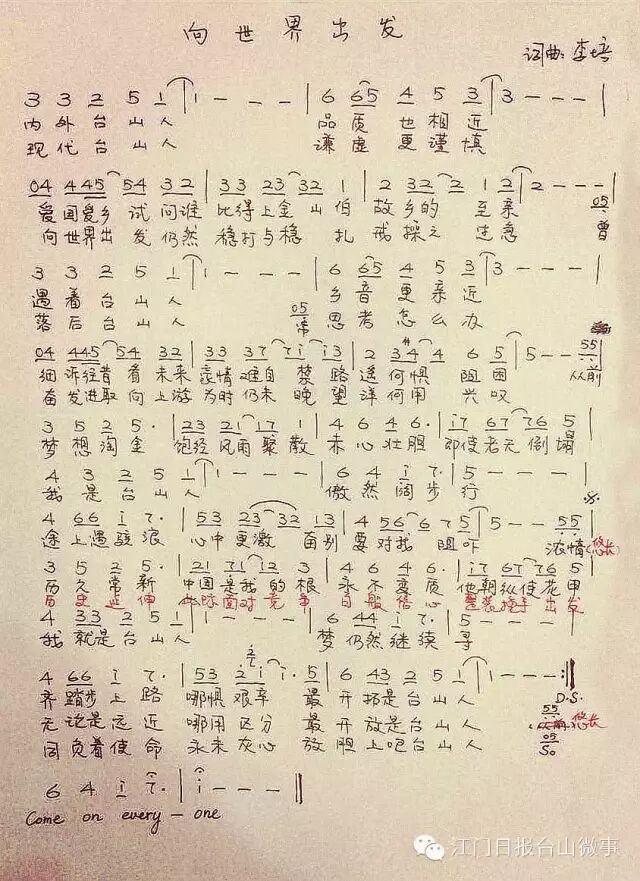 向世界出发
词曲: 李培
3 3 2 5 1 | 1 - - - | 6 65 4 5 3 | 3 - - -
内外台山人 品质也相近
现代台山人 谦虚更谨慎
04 445 54 32 | 33 23 32 1 | 2 32 2 1 2 | 2 - - 05
爱国爱乡 试问谁 比得上金山伯 故乡的至亲 曾
向世界出发 仍然 稳打与稳扎 戒躁之
3 3 2 5 1 | 1 - - - | 6 65 4 5 3 | 3 - - -
遇着台山人 乡音更亲近
落后台山人 05 常 思考怎么办
04 445 54 32 | 33 37 7i i3 | 2 3 #4 4 6 5 | 5 - - 55
细诉往昔 看未来 豪情难自禁 路遥何惧阻困 从前
奋发进取 向上游 为时仍未晚 望洋何用兴叹
3 5 2 5 | 23 21 17 1 | 4 6 4 6 | i7 67 76 5
梦想淘金 饱经风雨聚散 赤心壮胆 即使老天倒塌
4 3 2 5 1 | 1 - - - | 6 4 i 7·
我是台山人 傲然阔步行
4 66 i 7· | 53 23 32 13 | 4 56 6 7 5 | 5 - - 55
途上遇骇浪 心中更激奋 别要对我阻吓 浓情 (悠长
历久常新 中国是我的根 永不变质 他朝纵使花甲
历史延伸 面对竞争 百般信心 整装携手出发
4 33 2 5 1 | 1 - - - | 6 44 i 7 | 5 - - -
我就是台山人 梦仍然继续寻
4 66 i 7· | 53 2 i i· 5 | 6 43 2 5 1 | 1 - - :||
齐踏步上路 哪惧艰辛 最开拓是台山人 D.S.
无论是远近 哪用区分 最开放是台山人 55 (从前 悠长
同负着使命 永未灰心 放胆上吧台山人 05 So
6 4 i 7· | i - - - ||
Come on every - one
江门日报台山微事